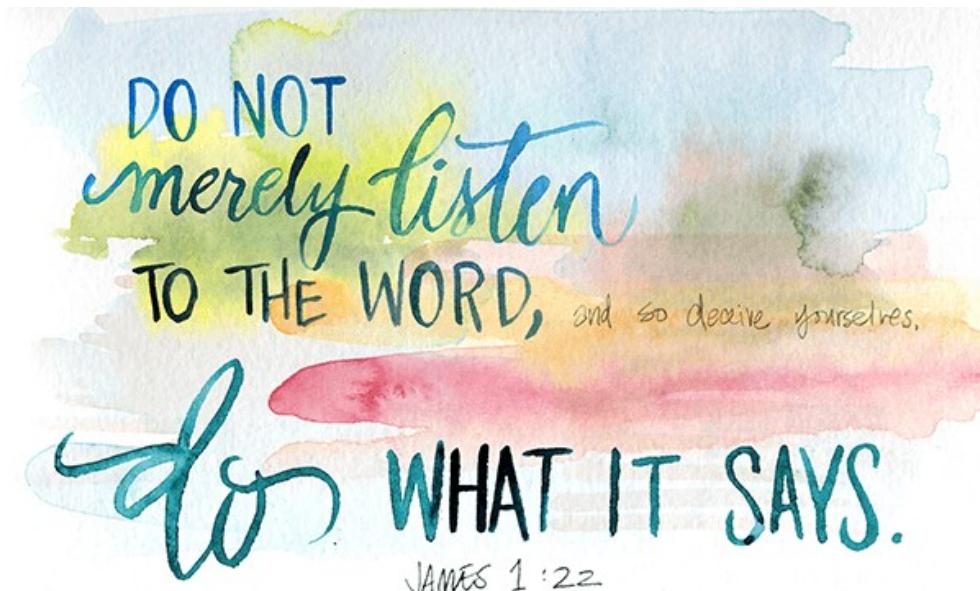 DO NOT
merely listen
TO THE WORD, and so deceive yourselves.
do WHAT IT SAYS.
JAMES 1:22